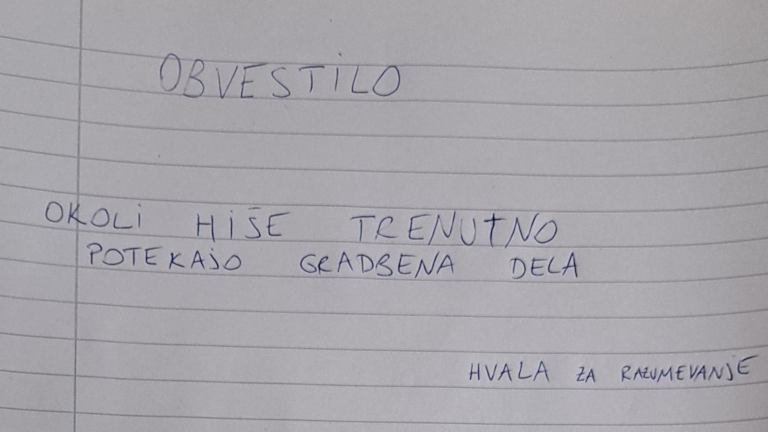 OBVESTILO
OKOLI HIŠE TRENUTNO
POTEKAJO GRADBENA DELA
HVALA ZA RAZUMEVANJE